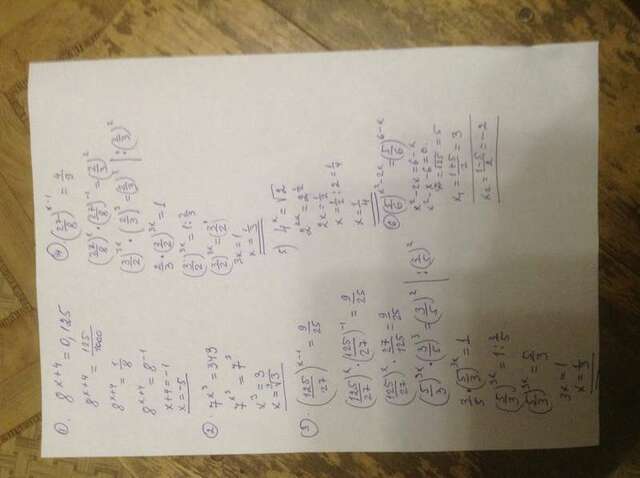 1. 8^(x+4) = 0,125
8^(x+4) = 125/1000
8^(x+4) = 1/8
8^(x+4) = 8^(-1)
x+4 = -1
x = -5
2. 7^(x^3) = 343
7^(x^3) = 7^3
x^3 = 3
x = ∛3
3. (125/27)^(x-1) = 9/25
(125/27)^x · (125/27)^(-1) = 9/25
(125/27)^x · 27/125 = 9/25
(5/3)^(3x) · (3/5)^3 = (3/5)^2 | : (3/5)^2
3/5 · (5/3)^(3x) = 1
(5/3)^(3x) = 1 : 3/5
(5/3)^(3x) = 5/3
3x = 1
x = 1/3
4. (27/8)^(x-1) = 4/9
(27/8)^x · (27/8)^(-1) = (2/3)^2
(3/2)^(3x) · (2/3)^3 = (2/3)^2 | : (2/3)^2
2/3 · (3/2)^(3x) = 1
(3/2)^(3x) = 1 : 2/3
3x = 1
x = 1/3
5) 4^x = √2
2^(2x) = 2^(1/2)
2x = 1/2
x = 1/2 : 2 = 1/4
x = 1/4
6. (5/6)^(x^2-2x) = (5/6)^(6-x)
x^2-2x = 6-x
x^2-x-6 = 0
= √25 = 5
x1 = (1+5)/2 = 3
x2 = (1-5)/2 = -2